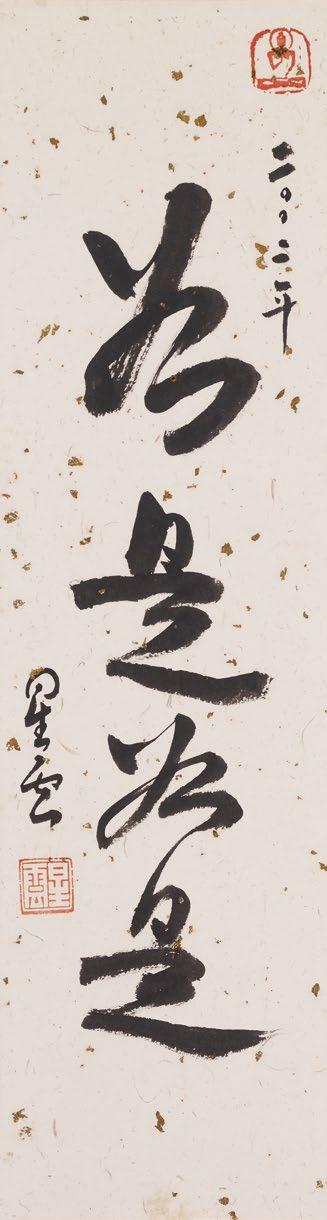 二〇〇二年
如是如是
星雲
星雲